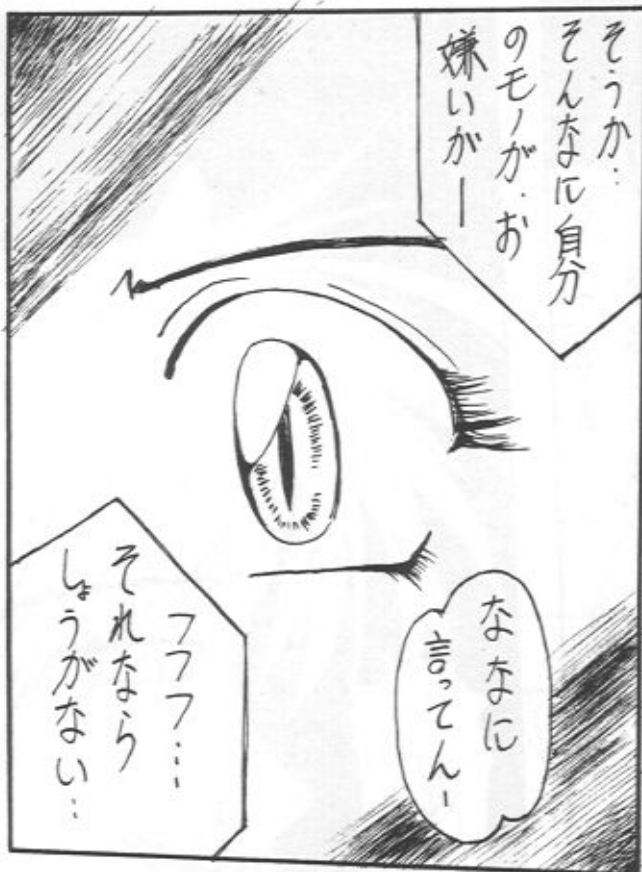 そうか‥
そんなに自分
のモノが、お
嫌いがー
ななに
言ってんー
フフフ…
それなら
しょうがない‥